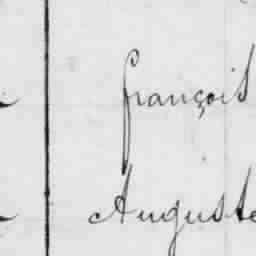 françois
Auguste